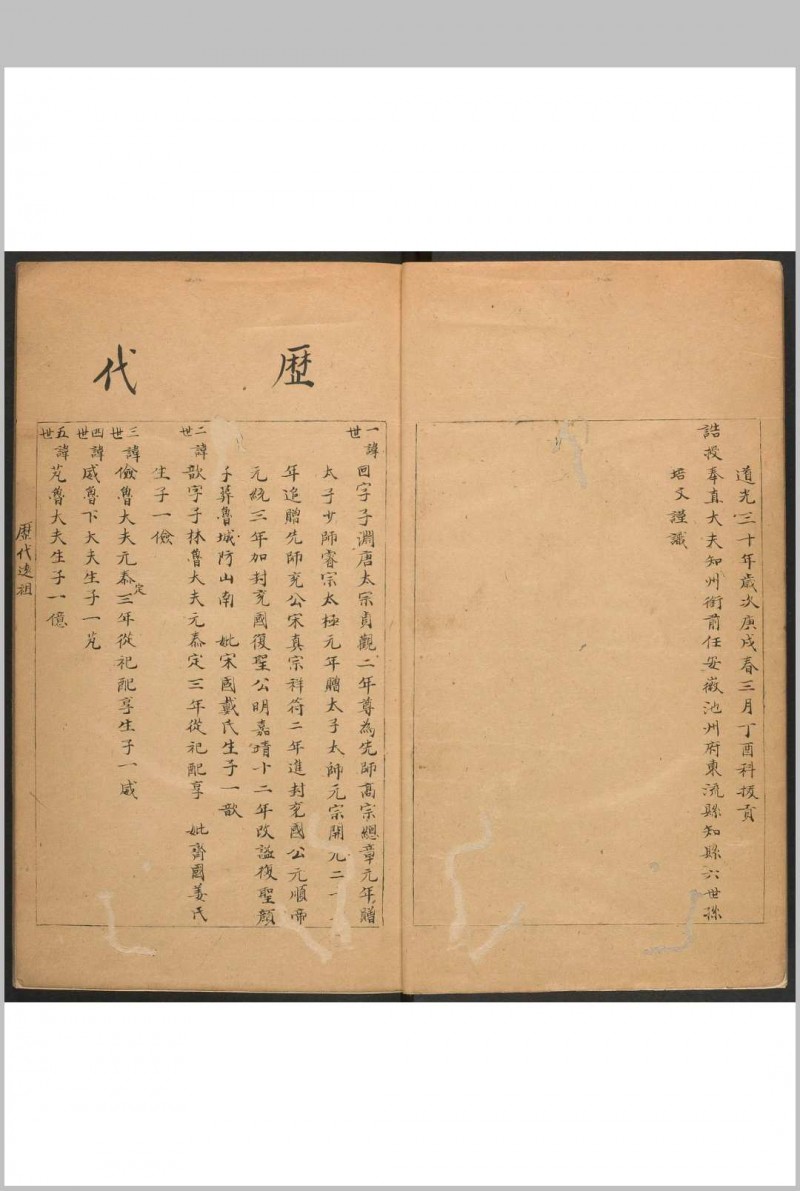 道光三十年歲次庚戌春三月丁酉科拔貢
誥授奉直大夫知州銜前任安徽池州府東流縣知縣六世孫
培文謹識
歷代
一世諱回字子淵唐太宗貞觀二年尊為先師高宗總章元年贈
太子少師睿宗太極元年贈太子太師元宗開元二十
年追贈先師兗公宋真宗祥符二年進封兗國公元順帝
元統三年加封兗國復聖公明嘉靖十二年改謚復聖顏
子葬魯城防山南 妣宋國戴氏生子一歆
二世諱歆字子林魯大夫元泰定三年從祀配享 妣齊國姜氏
生子一儉
三世諱儉魯大夫元泰定三年從祀配享生子一威
四世諱威魯下大夫生子一芃
五世諱芃魯大夫生子一億
歷代遠祖